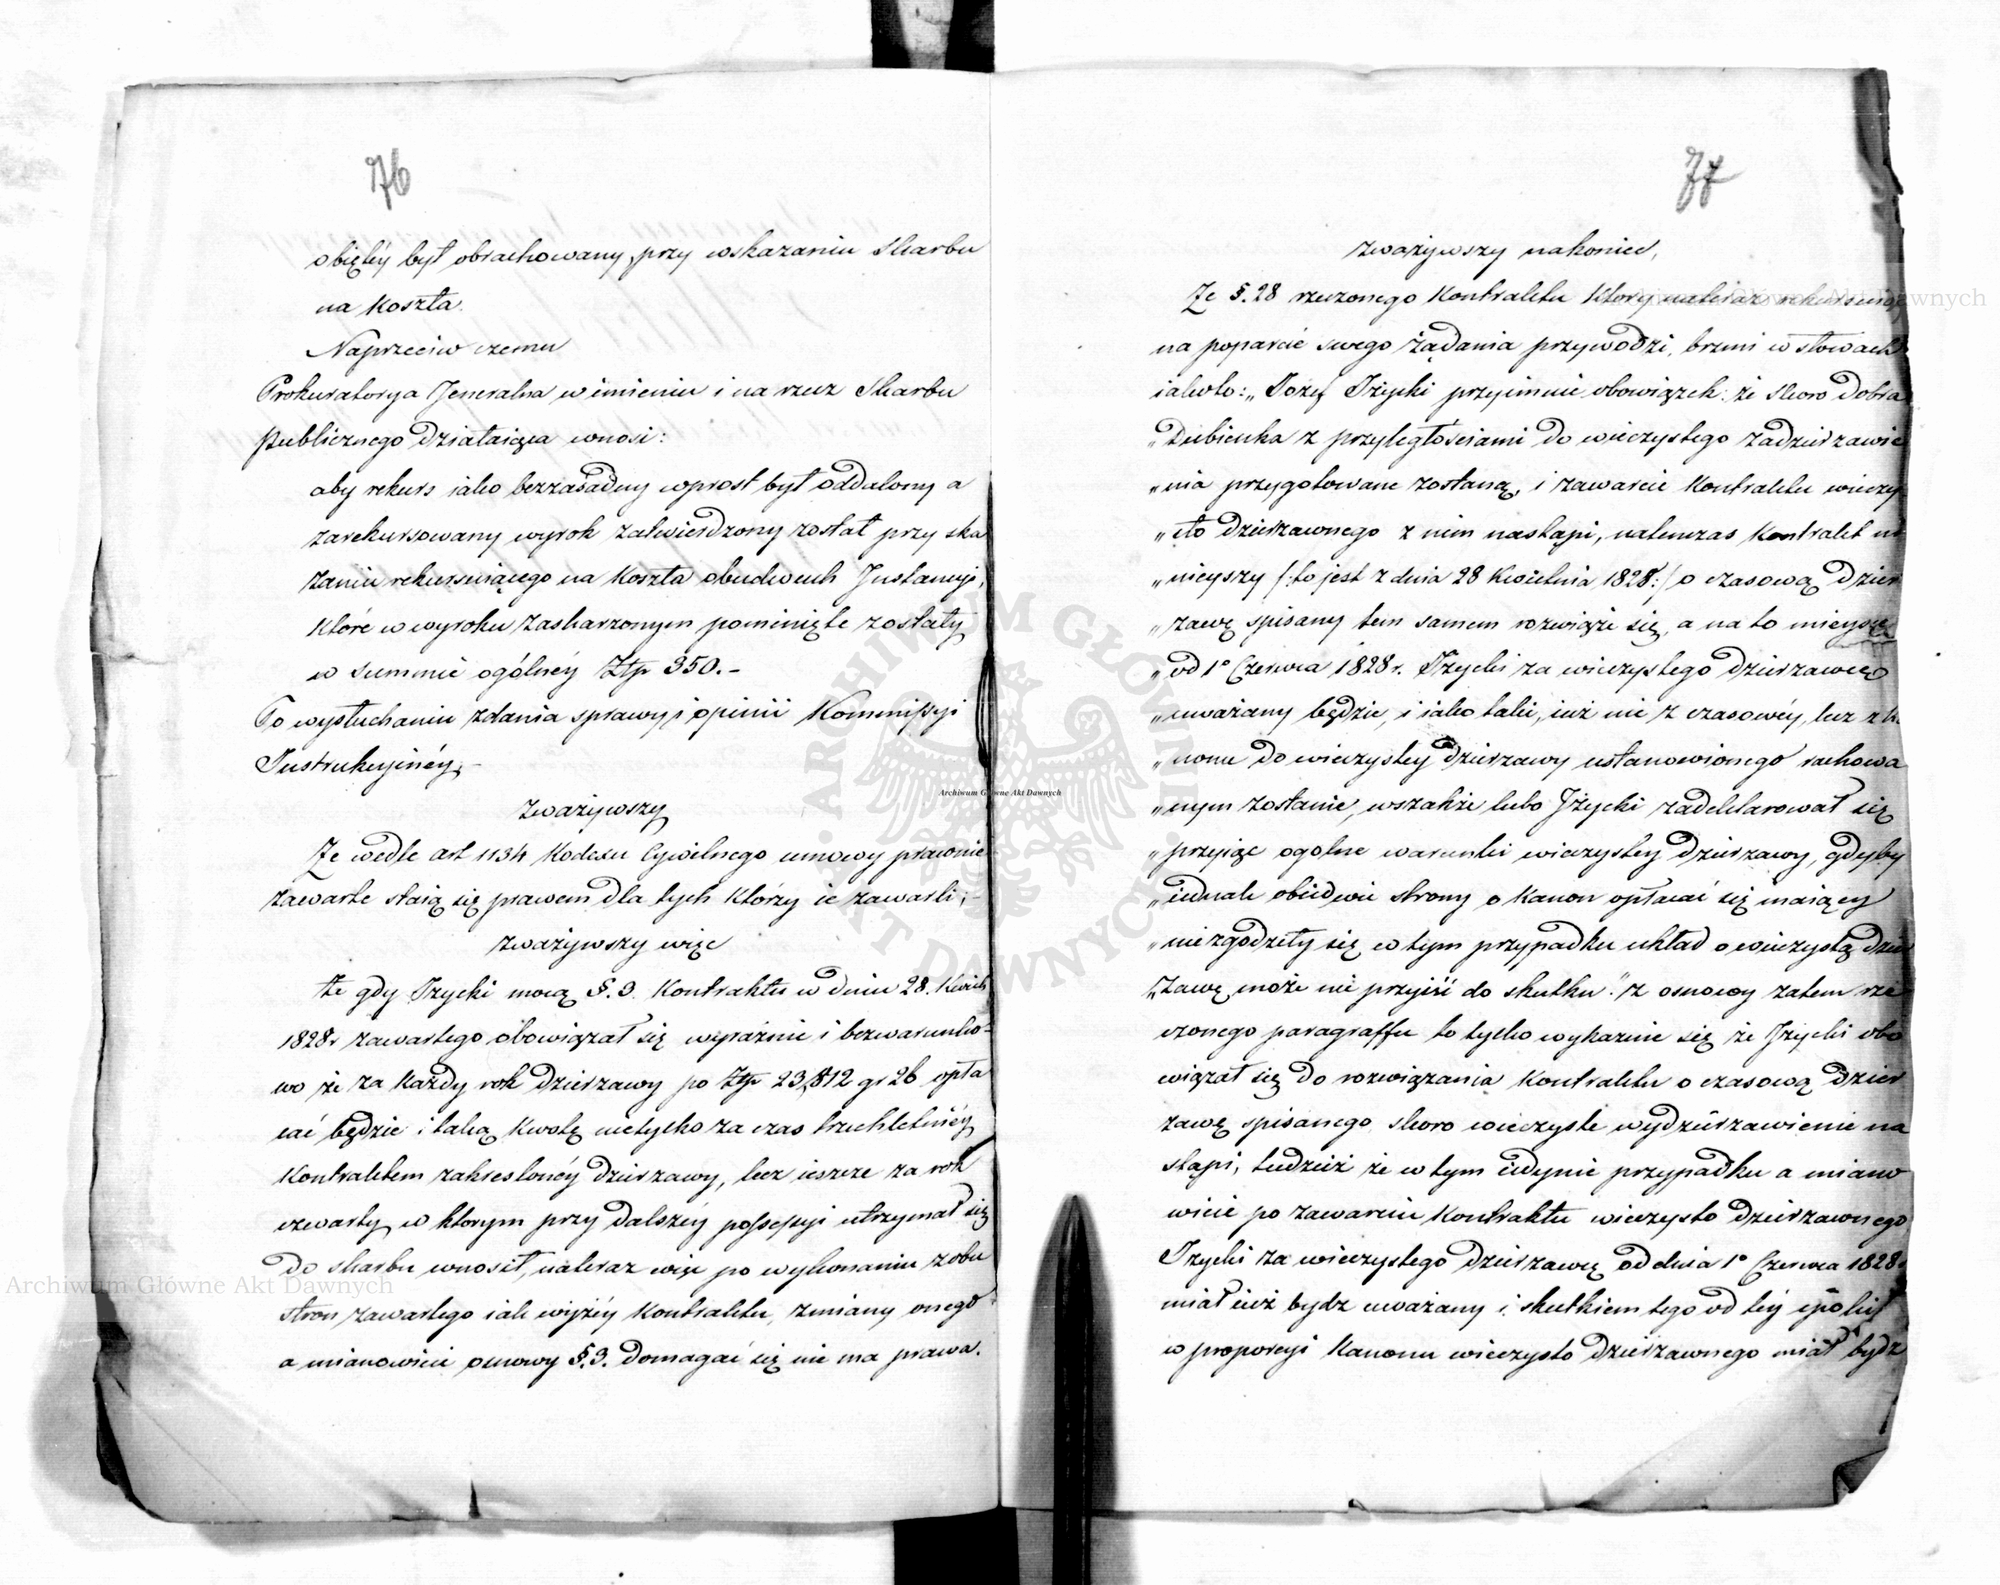 76
obiętéy był obrachowany, przy wskazaniu Skarbu
na Koszta.
Naprzeciw czemu
Prokuratorya Jeneralna w imieniu i na rzecz Skarbu
publicznego działaiąca wnosi:
aby rekurs iako bezzasadny wprost był oddalony a
zarekursowany wyrok zatwierdzony został przy ska
zaniu rekursuiącego na Koszta obudwuch Instancyi,
które w wyroku zaskarzonym pominięte zostały
w summie ogólnéy Złp 350.-
Po wysłuchaniu zdania sprawy i opinii Kommissyi
Instrukcyinéy,-
zważywszy
Ze wedle art 1134 Kodexu Cywilnego umowy prawnie
zawarte staią się prawem dla tych którzy ie zawarli;-
zważywszy więc
że gdy Iżycki mocą §. 3. Kontraktu w dniu 28. Kwiet
1828r zawartego obowiązał się wyraźnie i bezwarunko-
wo że za każdy rok dzierzawy po Złp 23,812 gr 26 opła
cać będzie i taką Kwotę nietylko za czas trzechletniéy
Kontraktem zakreslonéy dzierzawy, lecz ieszcze za rok
czwarty, w ktorym przy dalszéy possessyi utrzymał się
do skarbu wnosił, nateraz więc po wykonaniu z obu
stron zawartego iak wyżéy Kontraktu, zmiany onego
a mianowicie osnowy §. 3. domagać się nie ma prawa.
77
zważywszy nakoniec,
Ze §. 28 rzeczonego Kontraktu Ktory nateraz rekursuiący
na poparcie swego żądania przywodzi, brzmi w słowach
iakoto: „Jozef Iżycki przyimuie obowiązek: że skoro dobra
„Dubienka z przyległosciami do wieczystego zadzierzawie
„nia przygotowane zostaną, i zawarcie Kontraktu wieczy
„sto dzierzawnego z nim nastąpi, natenczas Kontrakt ni
„nieyszy /:to jest z dnia 28 Kwietnia 1828:/ o czasową dzier
„zawę spisany tem samem rozwiąże się, a na to mieysce
„od 1o Czerwca 1828r. Iżycki za wieczystego dzierzawcę
„uważany będzie, i iako taki, iuż nie z czasowéy, lecz z Ka
„nonu do wieczystey dzierzawy ustanowionego rachowa
„nym zostanie, wszakże lubo Iżycki zadeklarował się
„przyiąc ogolne warunki wieczystey dzierzawy, gdyby
„iednak obiedwie strony o Kanon opłacać się maiący
„nie zgodziły się w tym przypadku układ o wieczystą dzier
„zawę może nie przyiśź do skutku." Z osnowy zatem rze
czonego paragraffu to tylko wykazuie się że Iżycki obo
wiązał się do rozwiązania Kontraktu o czasową dzier
zawę spisanego skoro wieczyste wydzierzawienie na
stąpi, tudzież że w tym iedynie przypadku a miano
wicie po zawarciu Kontraktu wieczysto dzierzawnego
Iżycki za wieczystego dzierzawcę od dnia 1o Czerwca 1828r
miał iuż bydz uważany i skutkiem tego od téy epoki
w proporcyi Kanonu wieczysto dzierzawnego miał bydz
Archiwum Główne Akt Dawnych